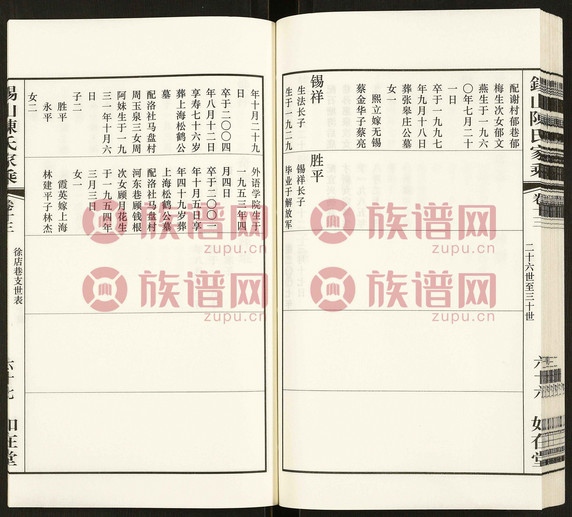 錫山陳氏家乘
二十六世至三十世
六十六
如在堂
配谢村郁巷郁
梅生次女郁文
燕生于一九六
〇年七月二十
一日
卒于一九七
年九月十八日
葬张皋庄公墓
女一
熙立嫁无锡
蔡金华子蔡亮
锡祥
生法长子
生于一九二九
胜平
锡祥长子
毕业于解放军
年十月二十九
日
卒于二〇〇四
年八月十二日
享寿七十六岁
葬上海松鹤公
墓
配洛社马盘村
周玉泉三女周
阿妹生于一九
三一年十月六
日
子二
胜平
永平
女二
外语学院生于
一九五三年四
月四日
卒于二〇〇一
年十月五日享
年四十九岁葬
上海松鹤公墓
配洛社马盘村
河东巷顾钱根
次女顾月花生
于一九五四年
三月三日
女一
霞英嫁上海
林建平子林杰
錫山陳氏家乘
卷十三
徐店巷支世表
六十七
如在堂
族谱网
zupu.cn
族谱网
zupu.cn
族谱网
zupu.cn
族谱网
zupu.cn